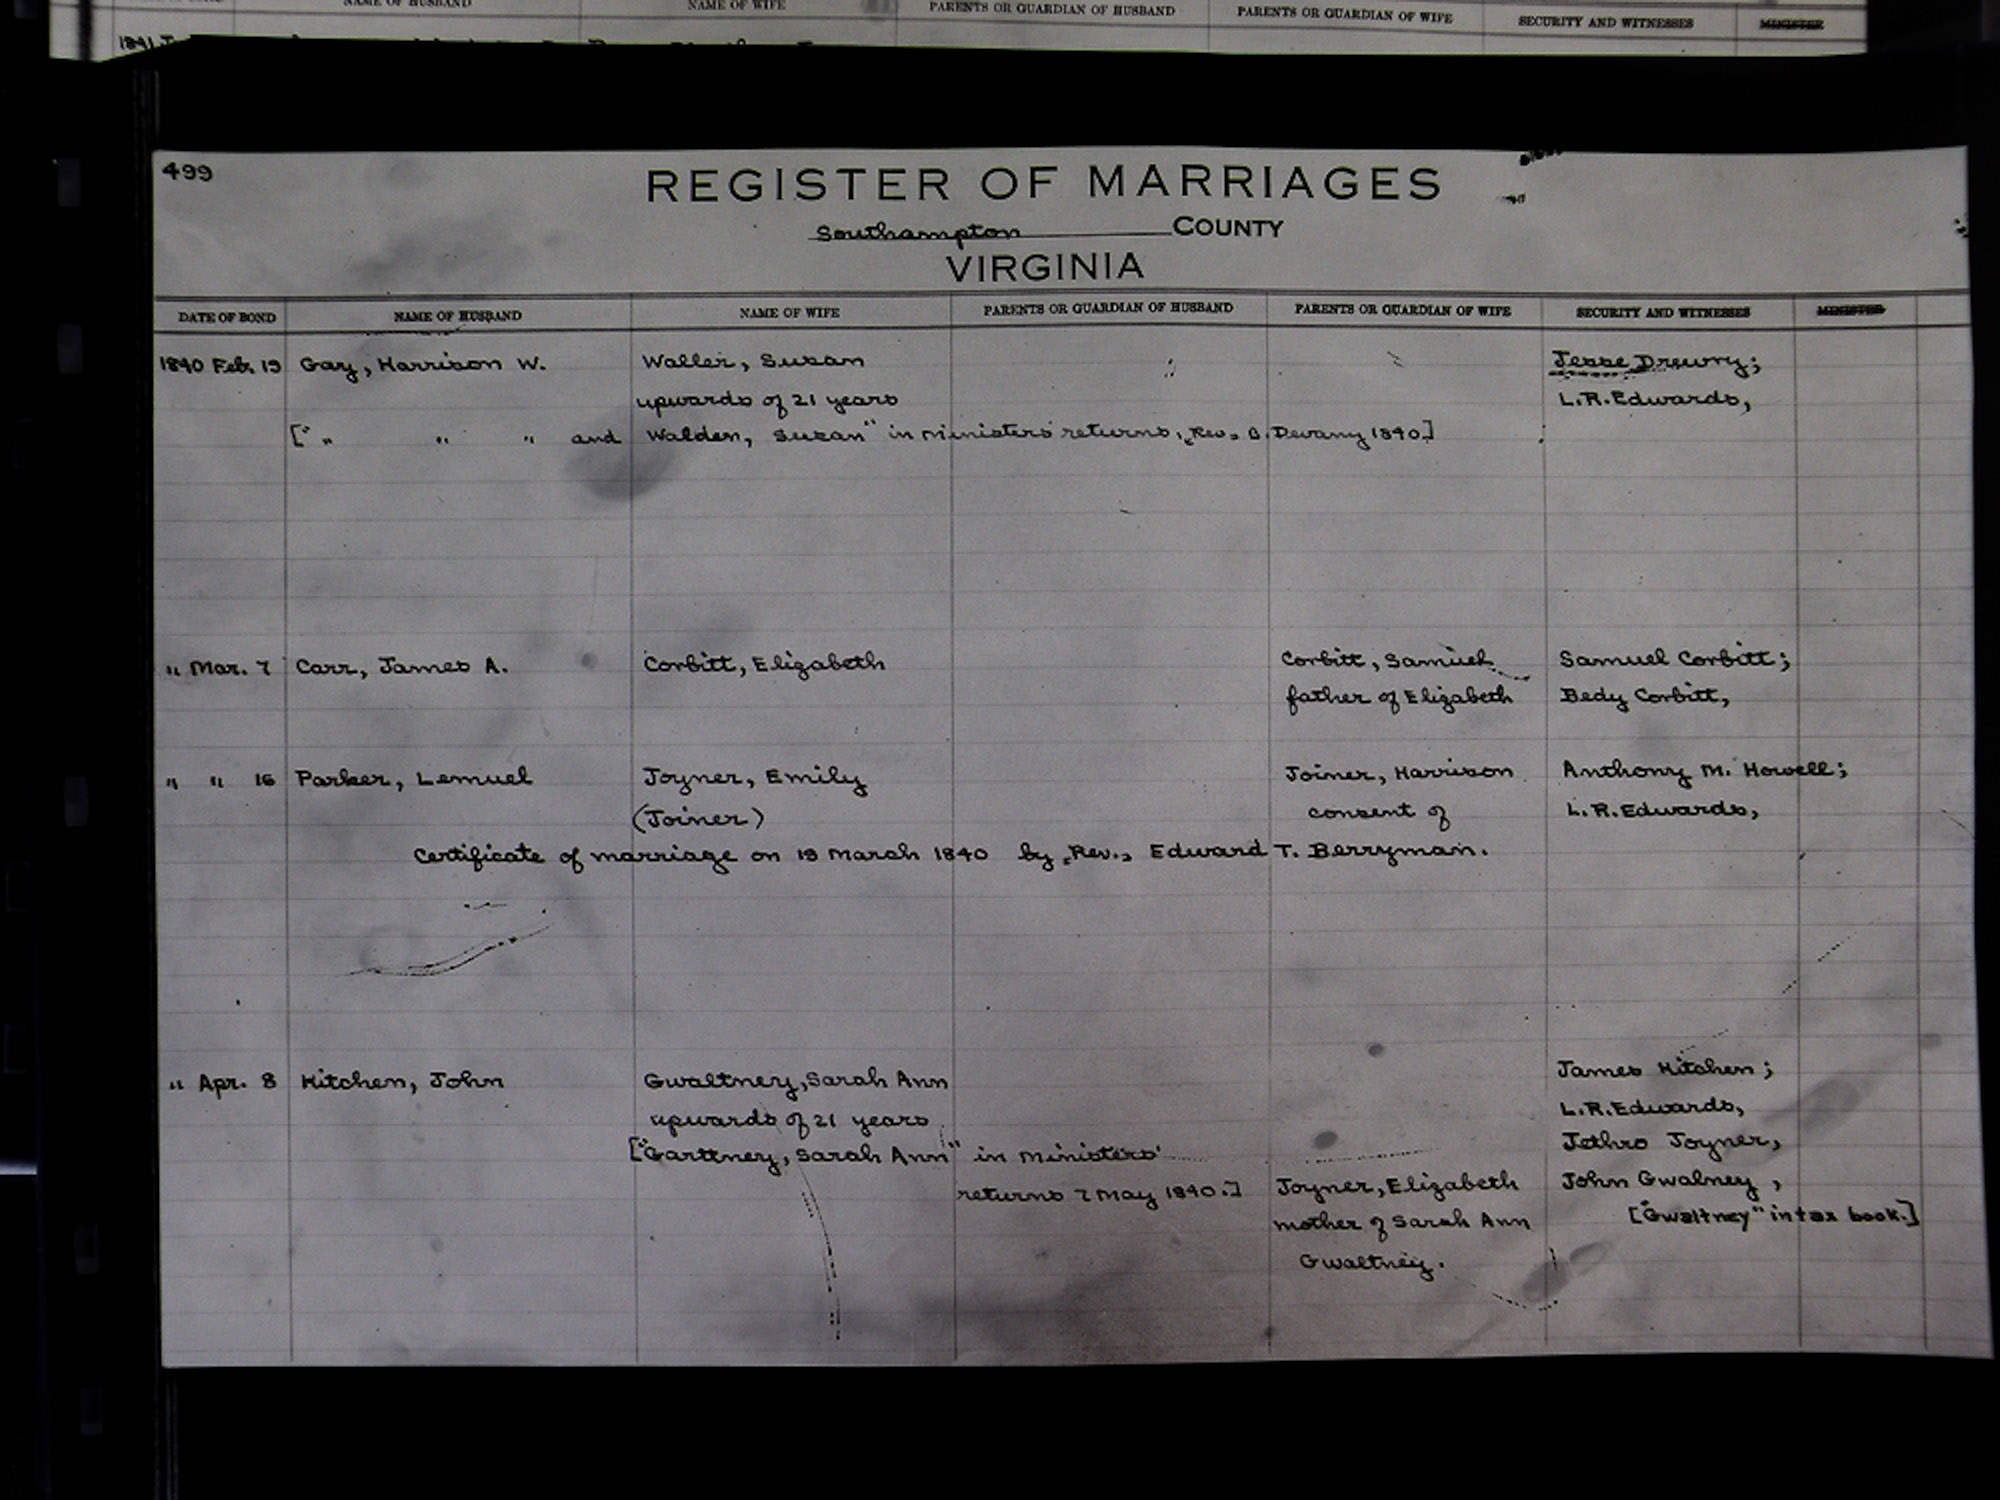 NAME OF HUSBAND NAME OF WIFE PARENTS OR GUARDIAN OF HUSBAND PARENTS OR GUARDIAN OF WIFE SECURITY AND WITNESSES MINISTER
1841
499
REGISTER OF MARRIAGES
Southampton COUNTY
VIRGINIA
DATE OF BOND NAME OF HUSBAND NAME OF WIFE PARENTS OR GUARDIAN OF HUSBAND PARENTS OR GUARDIAN OF WIFE SECURITY AND WITNESSES MINISTER
1840 Feb. 19 Gay, Harrison W. Waller, Suzan Jesse Drewry;
upwards of 21 years L.R.Edwards,
[" " " " and Walden, Suzan" in ministers' returns, Rev. B. Devany 1840]
" Mar. 7 Carr, James A. Corbitt, Elizabeth Corbitt, Samuel Samuel Corbitt;
father of Elizabeth Bedy Corbitt,
" " 16 Parker, Lemuel Joyner, Emily Joiner, Harrison Anthony M. Howell;
(Joiner) consent of L.R.Edwards,
Certificate of marriage on 19 March 1840 by Rev. Edward T. Berryman.
" Apr. 8 Kitchen, John Gwaltney, Sarah Ann James Kitchen;
upwards of 21 years L.R.Edwards,
["Garttney, Sarah Ann" in ministers' Jethro Joyner,
returns 7 May 1840.] Joyner, Elizabeth John Gwalney,
mother of Sarah Ann ["Gwaltney" in tax book.]
Gwaltney.